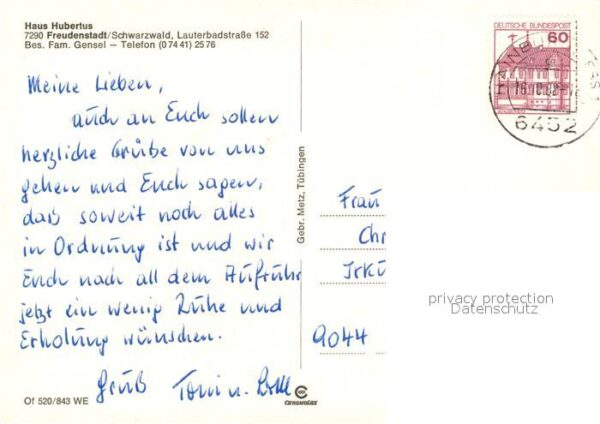 Haus Hubertus
7290 Freudenstadt/Schwarzwald, Lauterbadstraße 152
Bes. Fam. Gensel – Telefon (0 74 41) 25 76
Meine Lieben,
auch an Euch sollen
herzliche Grüße von uns
gehen und Euch sagen,
daß soweit noch alles
in Ordnung ist und wir
Euch nach all dem Aufruhr
jetzt ein wenig Ruhe und
Erholung wünschen.
Gruß Toni u.
Of 520/843 WE
Gebr. Metz, Tübingen
DEUTSCHE BUNDESPOST
60
6452
Frau
Chr
Irku
9044
privacy protection
Datenschutz